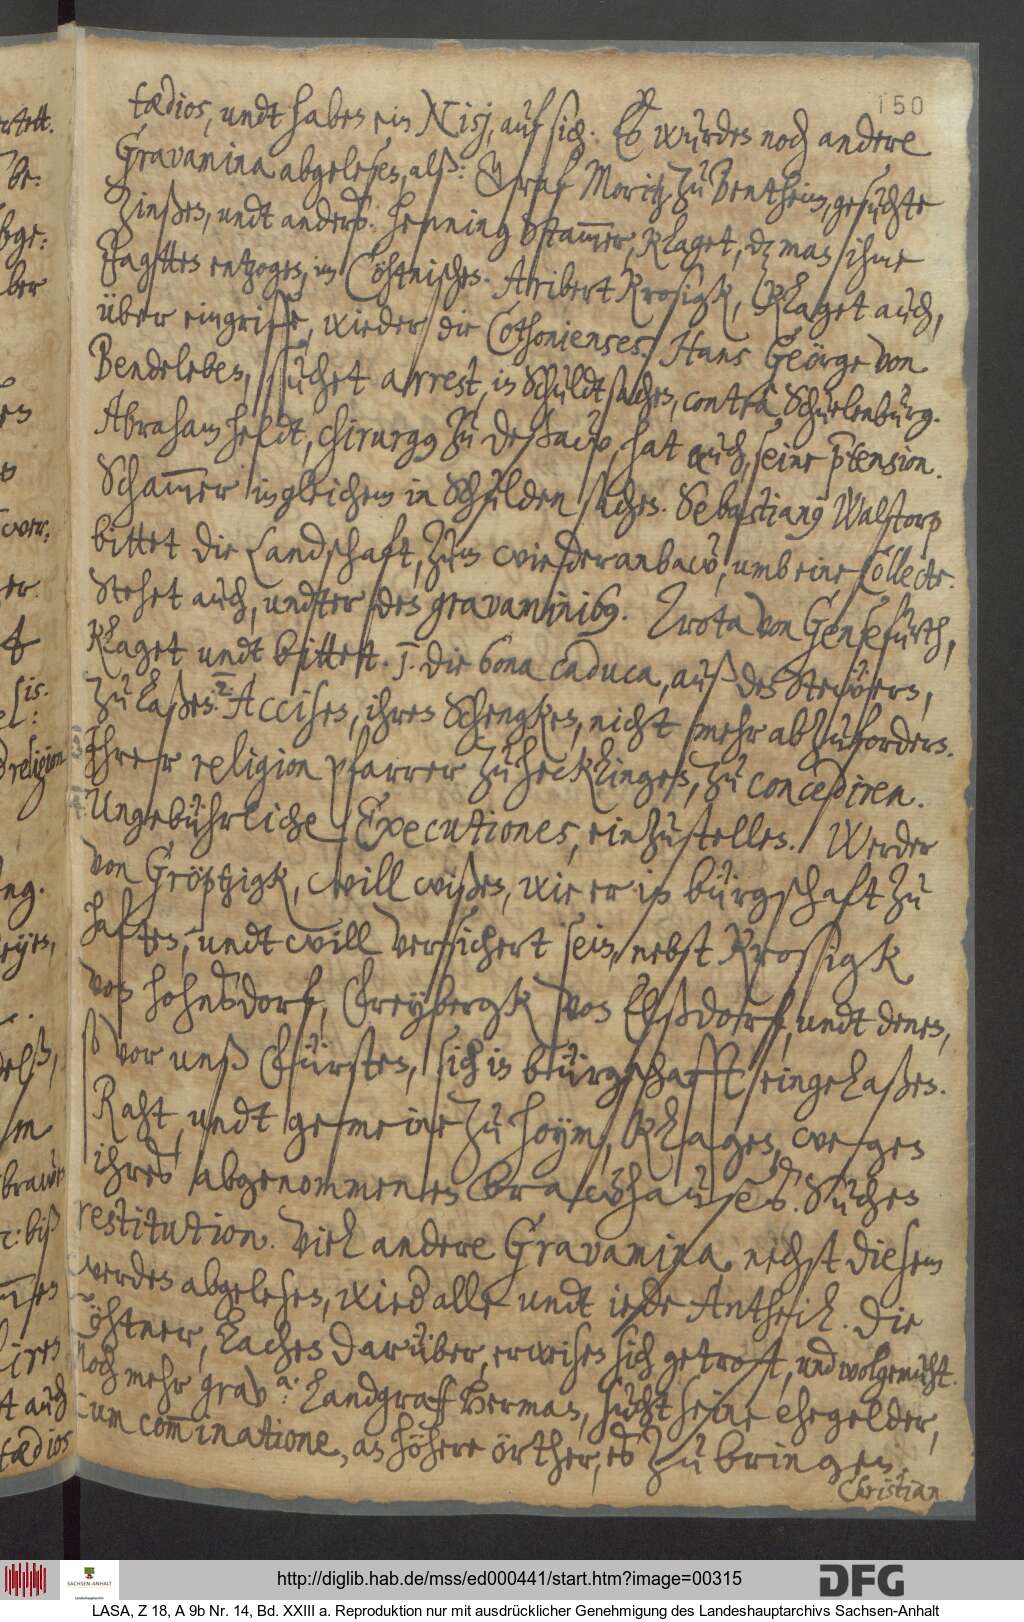 150
tædios, undt haben ein Nisj, auf sich. Es wurden noch andere
Gravamina abgelesen, alß: Graf Moritz zu Bentheim, gesuchte
Zinßen, undt anders. Henning Stam̄er, klaget, dz man ihme
Jagtten entzogen, im Cöhtnischen. Aribert Krosigk, klaget auch,
über eingriffe, wieder die Cothonienses. Hans Geörge von
Bendeleben, suchet arrest, in Schuldtsachen, contra Schulenburg.
Abraham heldt, chirurg9 zu Deßaw, hat auch, seine p̄tension.
Scham̄er ingleichem in Schulden sachen. Sebastian9 Walstorp
bittet die Landschaft, zum wiederanbaw, umb eine Collecte.
Stehet auch, undter den gravaminib9. Zrota von Gensefurth,
klaget undt bittett. 1. die bona caduca, auß des Stewern,
zu laßen. 2. Accisen, ihren Schengken, nicht mehr abzufordern.
3. Ihrer religion pfarrer zu hecklingen, zu concediren.
4. Ungebührliche Executiones, einzustellen. Werder
von Gröptzigk, will wißen, wie er in bürgschaft zu
haften, undt will versichert sein, nebst Krossigk
von hohnsdorf, Freybergk von Elßdorf, undt denen,
so vor unß Fürsten, sich in bürgschafft eingelaßen.
Raht undt gemeine zu Hoym, klagen, wegen
ihres abgenommenen Brawhauses. Suchen
restitution. Viel andere Gravamina, nechst diesem
werden abgelesen, wied alle undt iede Antheil. Die
Cöhtner, lachen darüber, erweisen sich getrost, und wolgemuht.
Noch mehr grava: Landgraff Herman, sucht seine ehegelder,
cum com̄inatione, an höhere örther, es zu bringen.
Christian
http://diglib.hab.de/mss/ed000441/start.htm?image=00315
DFG
SACHSEN-ANHALT
LASA, Z 18, A 9b Nr. 14, Bd. XXIII a. Reproduktion nur mit ausdrücklicher Genehmigung des Landeshauptarchivs Sachsen-Anhalt